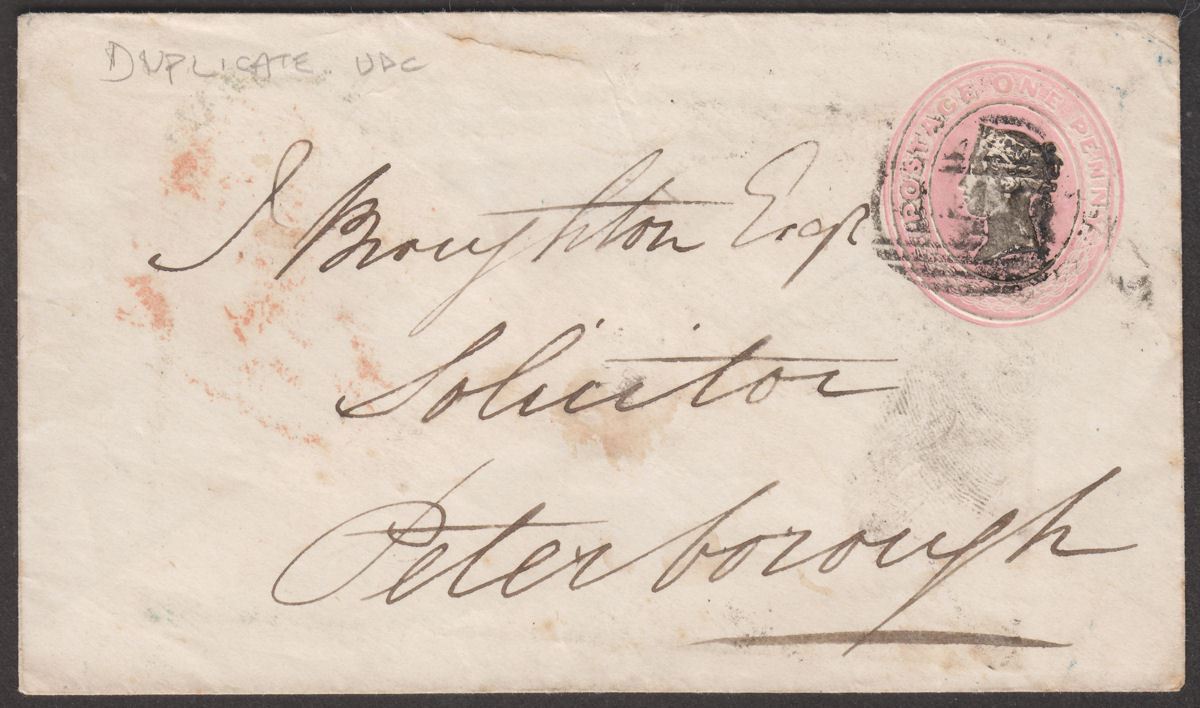 DUPLICATE UDC
POSTAGE ONE PENNY
J Broughton Esqr
Solicitor
Peterborough